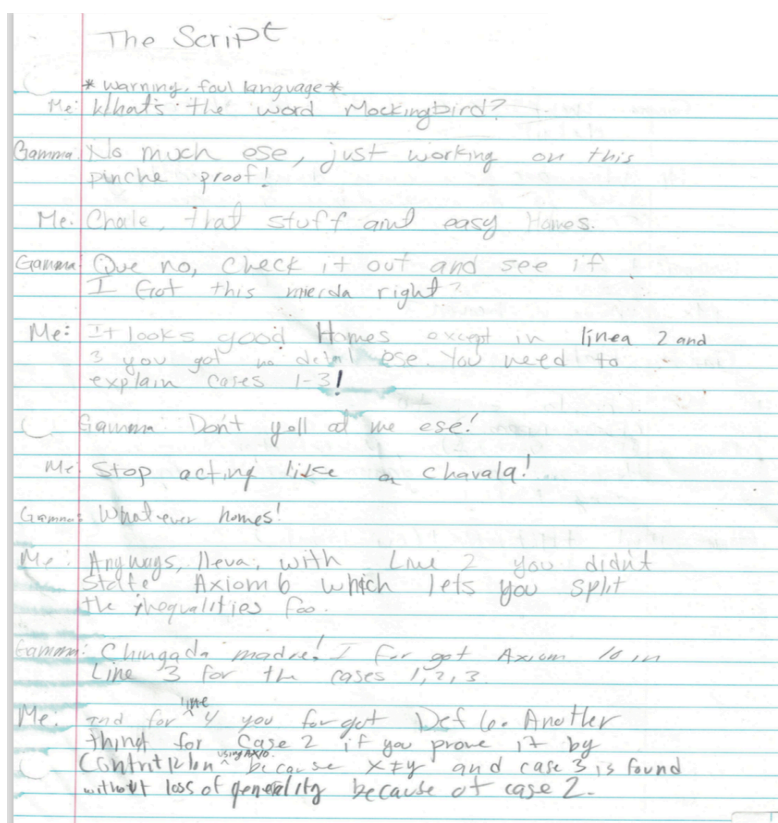 The Script
* warning, foul language *
Me: What's the word Mockingbird?
Gamma: No much ese, just working on this
pinche proof!
Me: Chale, that stuff aint easy Homes.
Gamma: Que no, check it out and see if
I Got this mierda right?
Me: It looks good Homes except in linea 2 and
3 you got no detail ese. You need to
explain cases 1-3!
Gamma: Don't yell at me ese!
Me: Stop acting like a chavala!
Gamma: Whatever homes!
Me: Anyways, lleva, with Line 2 you didn't
state Axiom 6 which lets you split
the inequalities foo.
Gamma: Chingada madre! I for got Axiom 10 in
Line 3 for the cases 1, 2, 3
Me: and for line 4 you forgot Def 6. Another
thing for Case 2 if you prove it by
using because x≠y and case 3 is found
without loss of generality because of case 2.